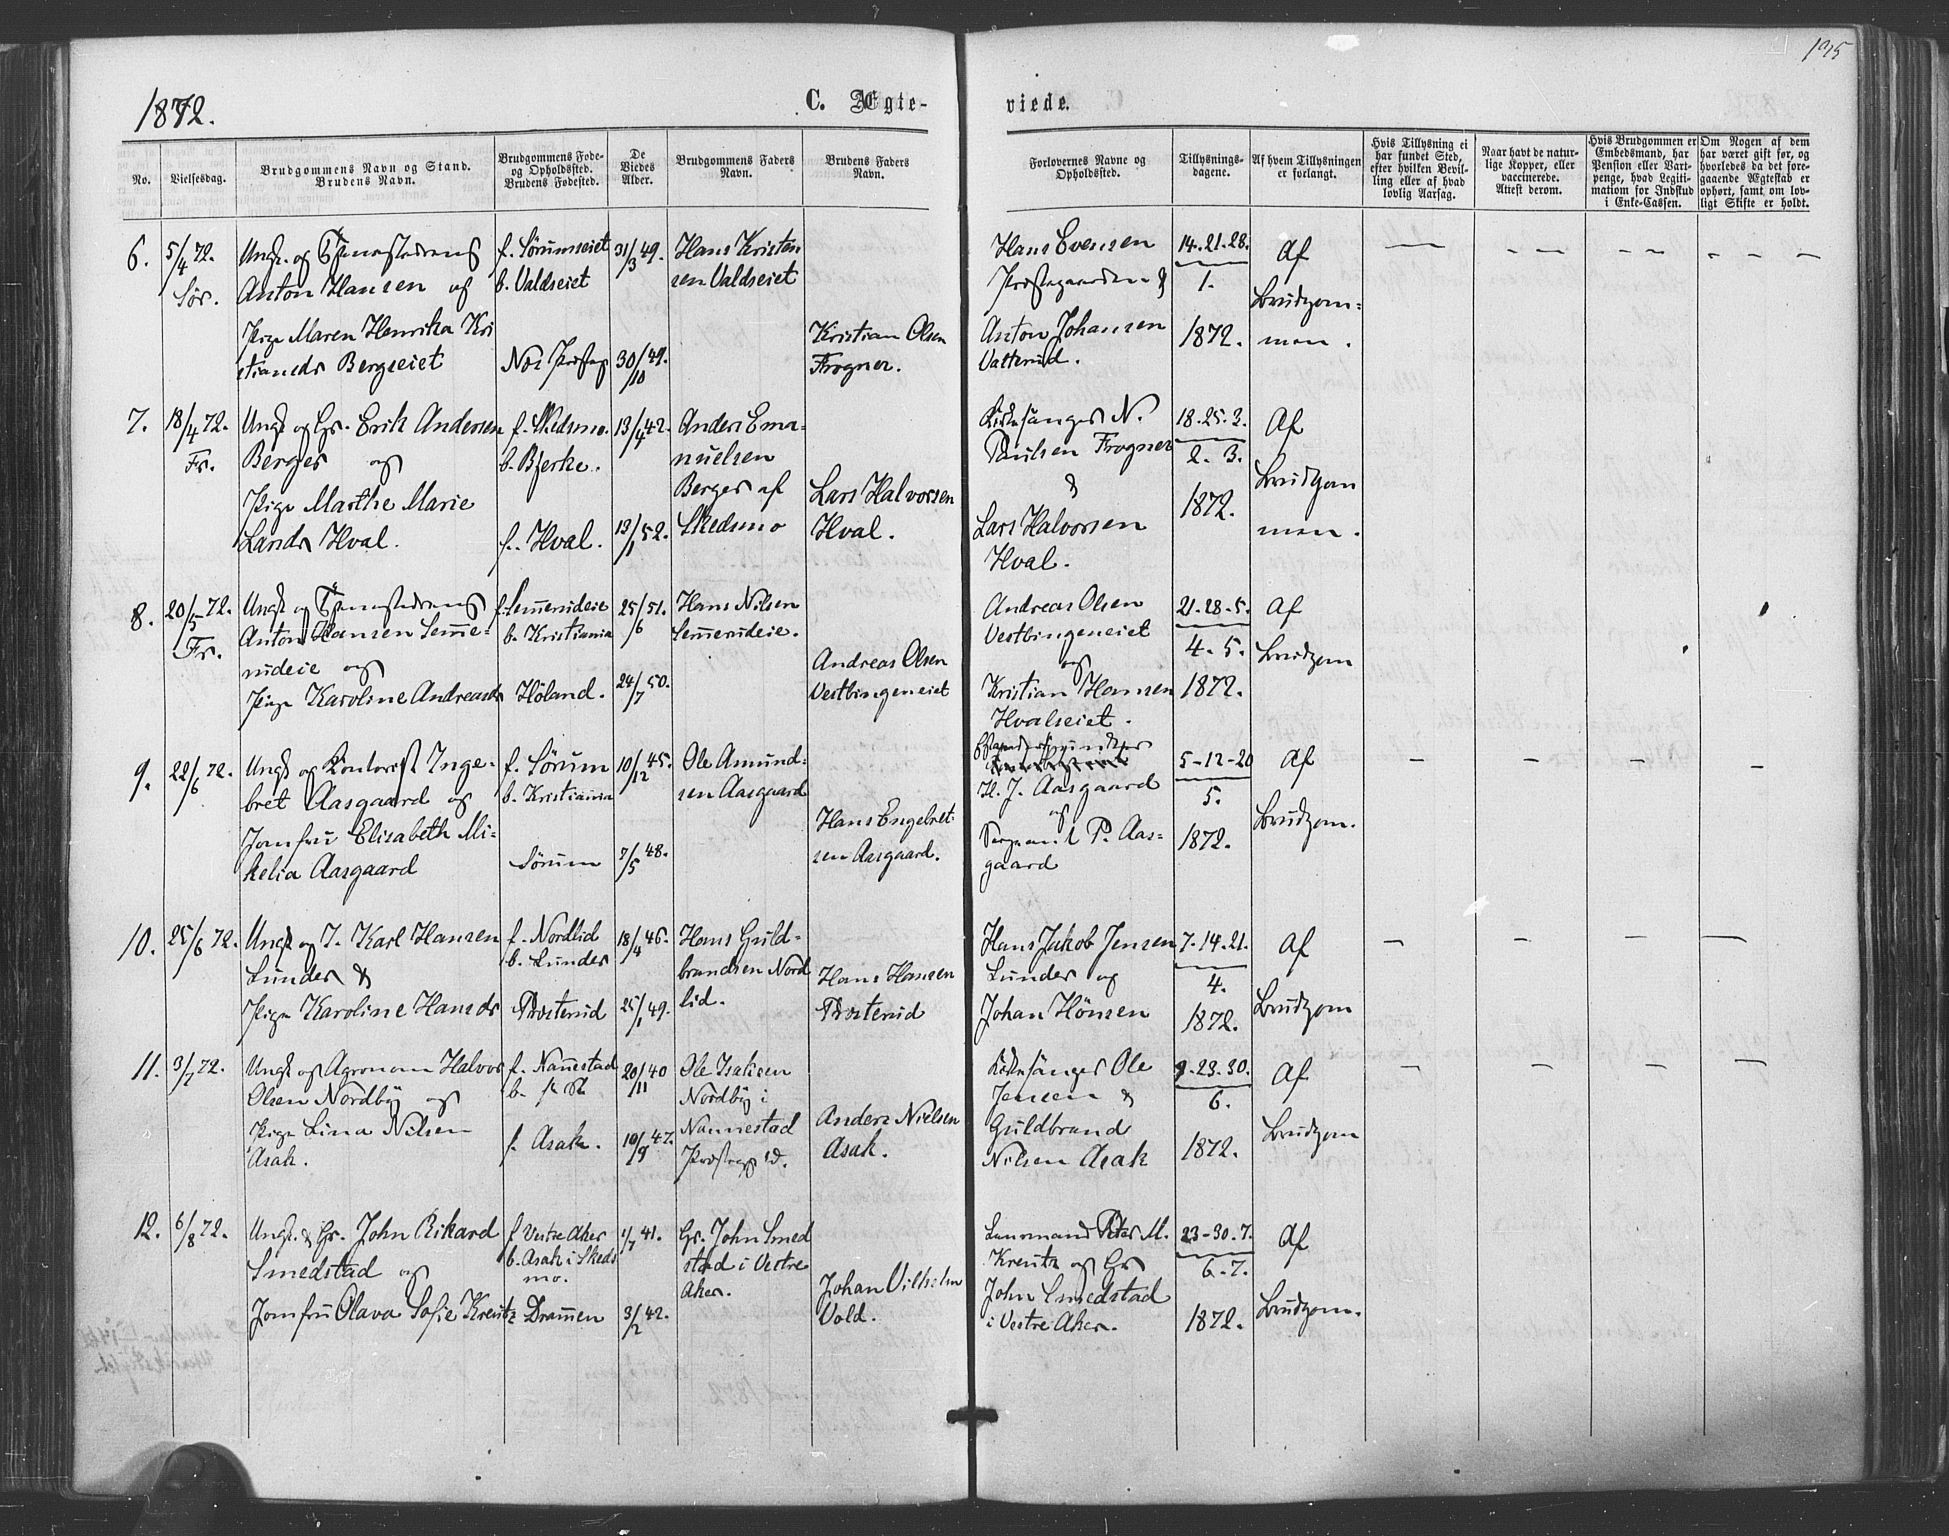 195
1872.
C. Ægte-
viede.
No.
Vielsesdag.
Brudgommens Navn og Stand.
Brudens Navn.
Brudgommens Føde-
og Opholdssted.
Brudens Fødested.
De
Viedes
Alder.
Brudgommens Faders
Navn.
Brudens Faders
Navn.
Forlovernes Navne og
Opholdssted.
Tillysnings-
dagene.
Af hvem Tillysningen
er forlangt.
Hvis Tillysning ei
har fundet Sted,
efter hvilken Bevil-
ling eller af hvad
lovlig Aarsag.
Naar havt de natur-
lige Kopper, eller
vaccinerede.
Attest derom.
Hvis Brudgommen er
Embedsmand, har
Pension eller Vart-
penge, hvad Legiti-
mation for Indskud
i Enke-Cassen.
Om Nogen af dem
har været gift før, og
hvorledes da det fore-
gaaende Ægteskab er
ophørt, samt om lov-
ligt Skifte er holdt.
6.
5/4 72.
Sør.
Ungk. og Tjenestedreng
Anton Hansen af
Pige Maren Henrika Kri
stiansdr Bergseiet
f. Sørumseiet
b. Valdseiet
Nes Præsteg
31/3 49.
30/10 49.
Hans Kristen
sen Valdseiet
Kristian Olsen
Frogner.
Hans Evensen
Præstegaarden &
Anton Johansen
Vatterud.
14. 21. 28.
1.
1872.
Af
Brudgom=
men.
7.
18/4 72.
Fr.
Ungk og Gr. Erik Andersen
Berger og
Pige Marthe Marie
Larsdr Hval.
f. Skedsmo.
b. Bjerke.
f. Hval.
13/4 42.
13/1 52.
Anders Ema=
nuelsen
Berger af
Skedsmo
Lars Halvorsen
Hval.
Kirkesanger N.
Paulsen Frogner
&
Lars Halvorsen
Hval.
18. 25. 3.
2. 3.
1872.
Af
Brudgom
men.
8.
20/5 72.
Fr.
Ungk og Tjenestedreng
Anton Hansen Lem̄e-
rudeie og
Pige Karoline Andreasdr
f. Lem̄erudeie
b. Kristiania
Høland.
25/6 51.
24/7 50.
Hans Nilsen
Lem̄erudeie.
Andreas Olsen
Vestbingeneiet
Andreas Olsen
Vestbingeneiet
og
Kristian Hansen
Hvalseiet.
21. 28. 5.
4. 5.
1872.
Af
Brudgom
9.
22/6 72.
Ungk og Kontorist Inge=
bret Aasgaard og
Jomfru Elisabeth Mi=
kelia Aasgaard
f. Sørum
b. Kristiania
Sørum
10/12 45.
7/5 48.
Ole Amund=
sen Aasgaard
Hans Engebret=
sen Aasgaard.
H. J. Aasgaard
og
Sergeant P. Aas=
gaard
5-12-20
5.
1872.
Af
Brudgom.
10.
25/6 72.
Ungk og I. Karl Hansen
Lunder &
Pige Karoline Hansdr
f. Nordlid
b. Lunder
Præsterud
18/4 46.
25/1 49.
Hans Guld=
brandsen Nord
lid.
Hans Hansen
Præsterud
Hans Jakob Jensen
Lunder og
Johan Hönsen
7. 14. 21.
4.
1872.
Af
Brudgom
11.
3/7 72.
Ungk og Agronom Halvor
Olsen Nordby og
Pige Lina Nilsen
Asak.
f. Nan̄estad
b.
f. Asak.
20/11 40
10/9 47.
Ole Isaksen
Nordby i
Nannestad
Præsteg d.
Anders Nielsen
Asak.
Kirkesanger Ole
Jensen &
Guldbrand
Nilsen Asak
9. 23. 30.
6.
1872.
Af
Brudgom
12.
6/8 72.
Ungk. & Gr. John Rikard
Smedstad og
Jomfru Olava Sofie Kreutz
f. Vestre Aker
b. Asak i Skeds
mo.
Dram̄en
1/7 41.
3/2 42.
Gr. John Smed
stad i Vestre
Aker.
Johan Vilhelm
Vold.
Lensmand Peter M.
Kreutz og Gr
John Smedstad
i Vestre Aker.
23-30-7.
6.-7.
1872.
Af
Brudgom.